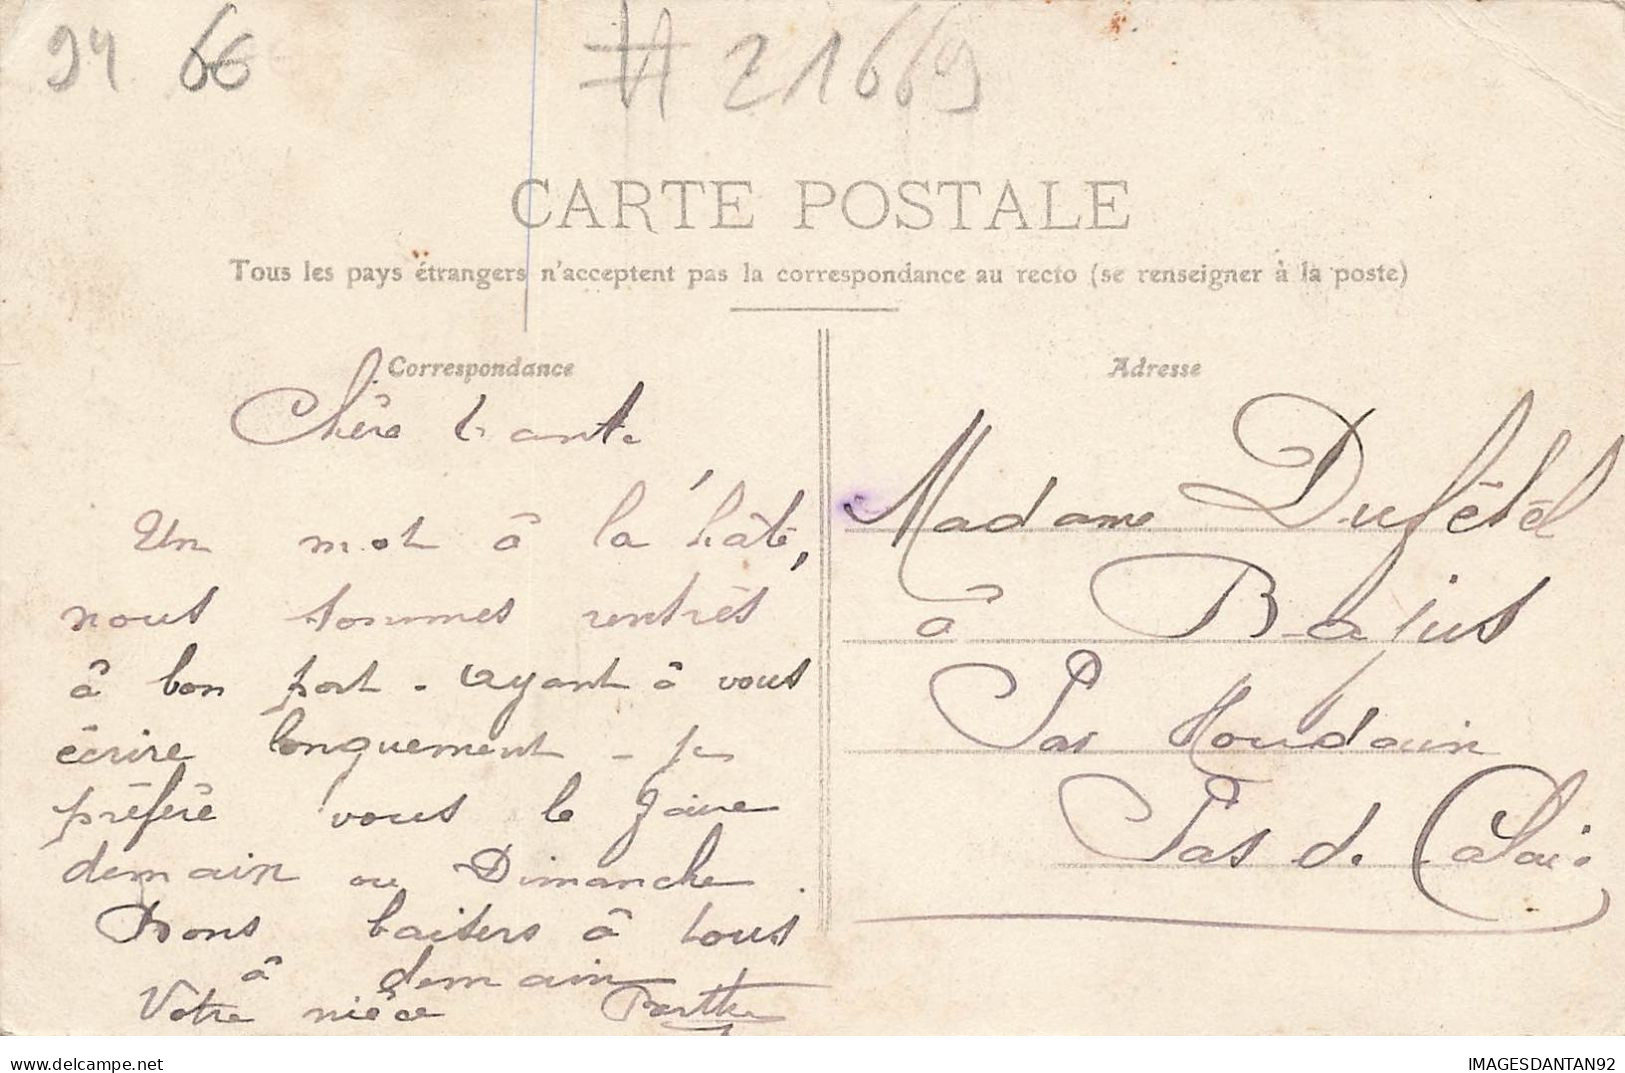 94 6€ #21669
CARTE POSTALE
Tous les pays étrangers n'acceptent pas la correspondance au recto (se renseigner à la poste)
Correspondance
Chère tante
Un mot à la hâte,
nous sommes rentrés
à bon port. ayant à vous
écrire longuement - je
préfère vous le faire
demain ou Dimanche.
Bons baisers à tous
à demain
Votre nièce Berthe
Adresse
Madame Dufétel
à Bajus
Par Houdain
Pas de Calais
delcampe.net
IMAGESDANTAN92